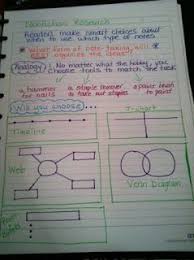 Nonfiction Research
Readers make smart choices about
when to use which type of notes.
What form of note-taking will
BEST organize the ideas?
Analogy: No matter what the hobby, you
choose tools to match the task.
a hammer
for nails
a staple remover
to take out staples
a paint brush
to paint
Will you choose...
Timeline
T-chart
Web
Venn Diagram